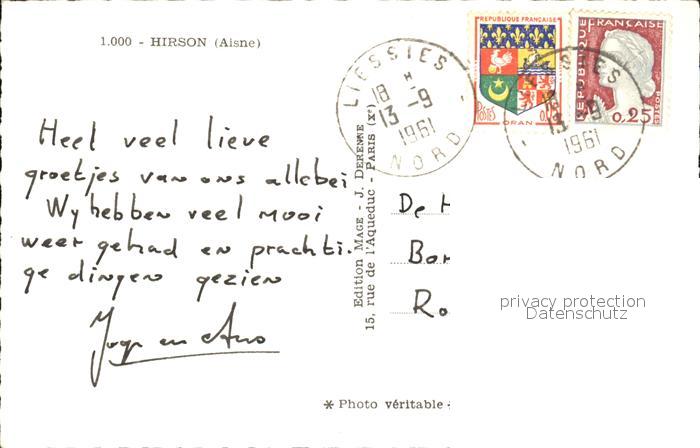 1.000 - HIRSON (Aisne)
Heel veel lieve
groetjes van ons allebei
Wy hebben veel mooi
weer gehad en prachti-
ge dingen gezien
en
Edition MAGE - J. DERENNE
15, rue de l'Aqueduc - PARIS (Xe)
* Photo véritable
REPUBLIQUE FRANÇAISE
POSTES
ORAN
REPUBLIQUE FRANÇAISE
0,25
LIESSIES
18 H
13 -9
1961
NORD
13 -9
1961
NORD
De H
Bor
Ro
privacy protection
Datenschutz